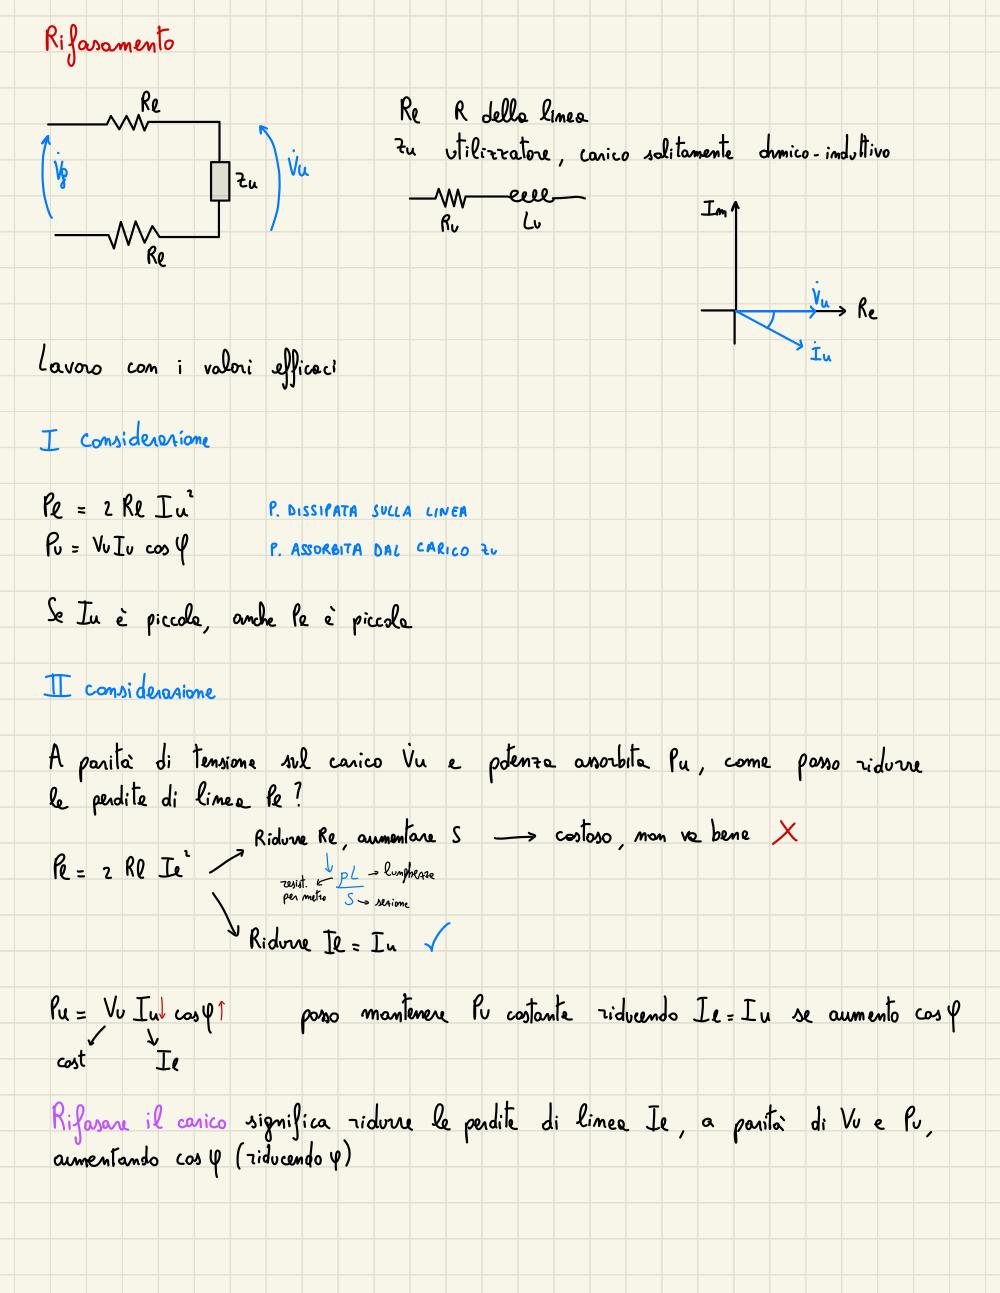 Rifasamento
Rl
V̇g
Zu
V̇u
Rl
Rl R della linea
Zu utilizzatore, carico solitamente ohmico-induttivo
Ru Lu
Im
V̇u
Re
İu
Lavoro con i valori efficaci
I considerazione
Pl = 2 Rl Iu² P. DISSIPATA SULLA LINEA
Pu = Vu Iu cos φ P. ASSORBITA DAL CARICO Zu
Se Iu è piccola, anche Pl è piccola
II considerazione
A parità di tensione sul carico V̇u e potenza assorbita Pu, come posso ridurre
le perdite di linea Pl?
Ridurre Rl, aumentare S → costoso, non va bene ✗
Pl = 2 Rl Il²
resist. per metro ← ρL → lunghezza
S → sezione
Ridurre Il = Iu ✓
Pu = Vu Iu↓ cos φ↑ posso mantenere Pu costante riducendo Il = Iu se aumento cos φ
cost Il
Rifasare il carico significa ridurre le perdite di linea Il, a parità di Vu e Pu,
aumentando cos φ (riducendo φ)